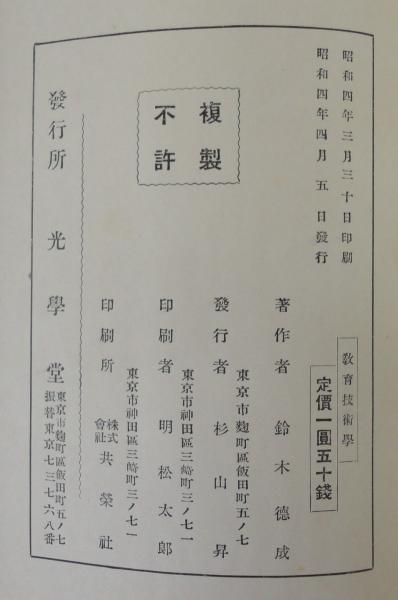 昭和四年三月三十日印刷
昭和四年四月五日發行
教育技術學
定價一圓五十錢
複製
不許
著作者 鈴木德成
東京市麴町區飯田町五ノ七
發行者 杉山昇
東京市神田區三崎町三ノ七一
印刷者 明松太郞
東京市神田區三崎町三ノ七一
印刷所 株式會社 共榮社
發行所 光學堂
東京市麴町區飯田町五ノ七
振替東京七三七六八番